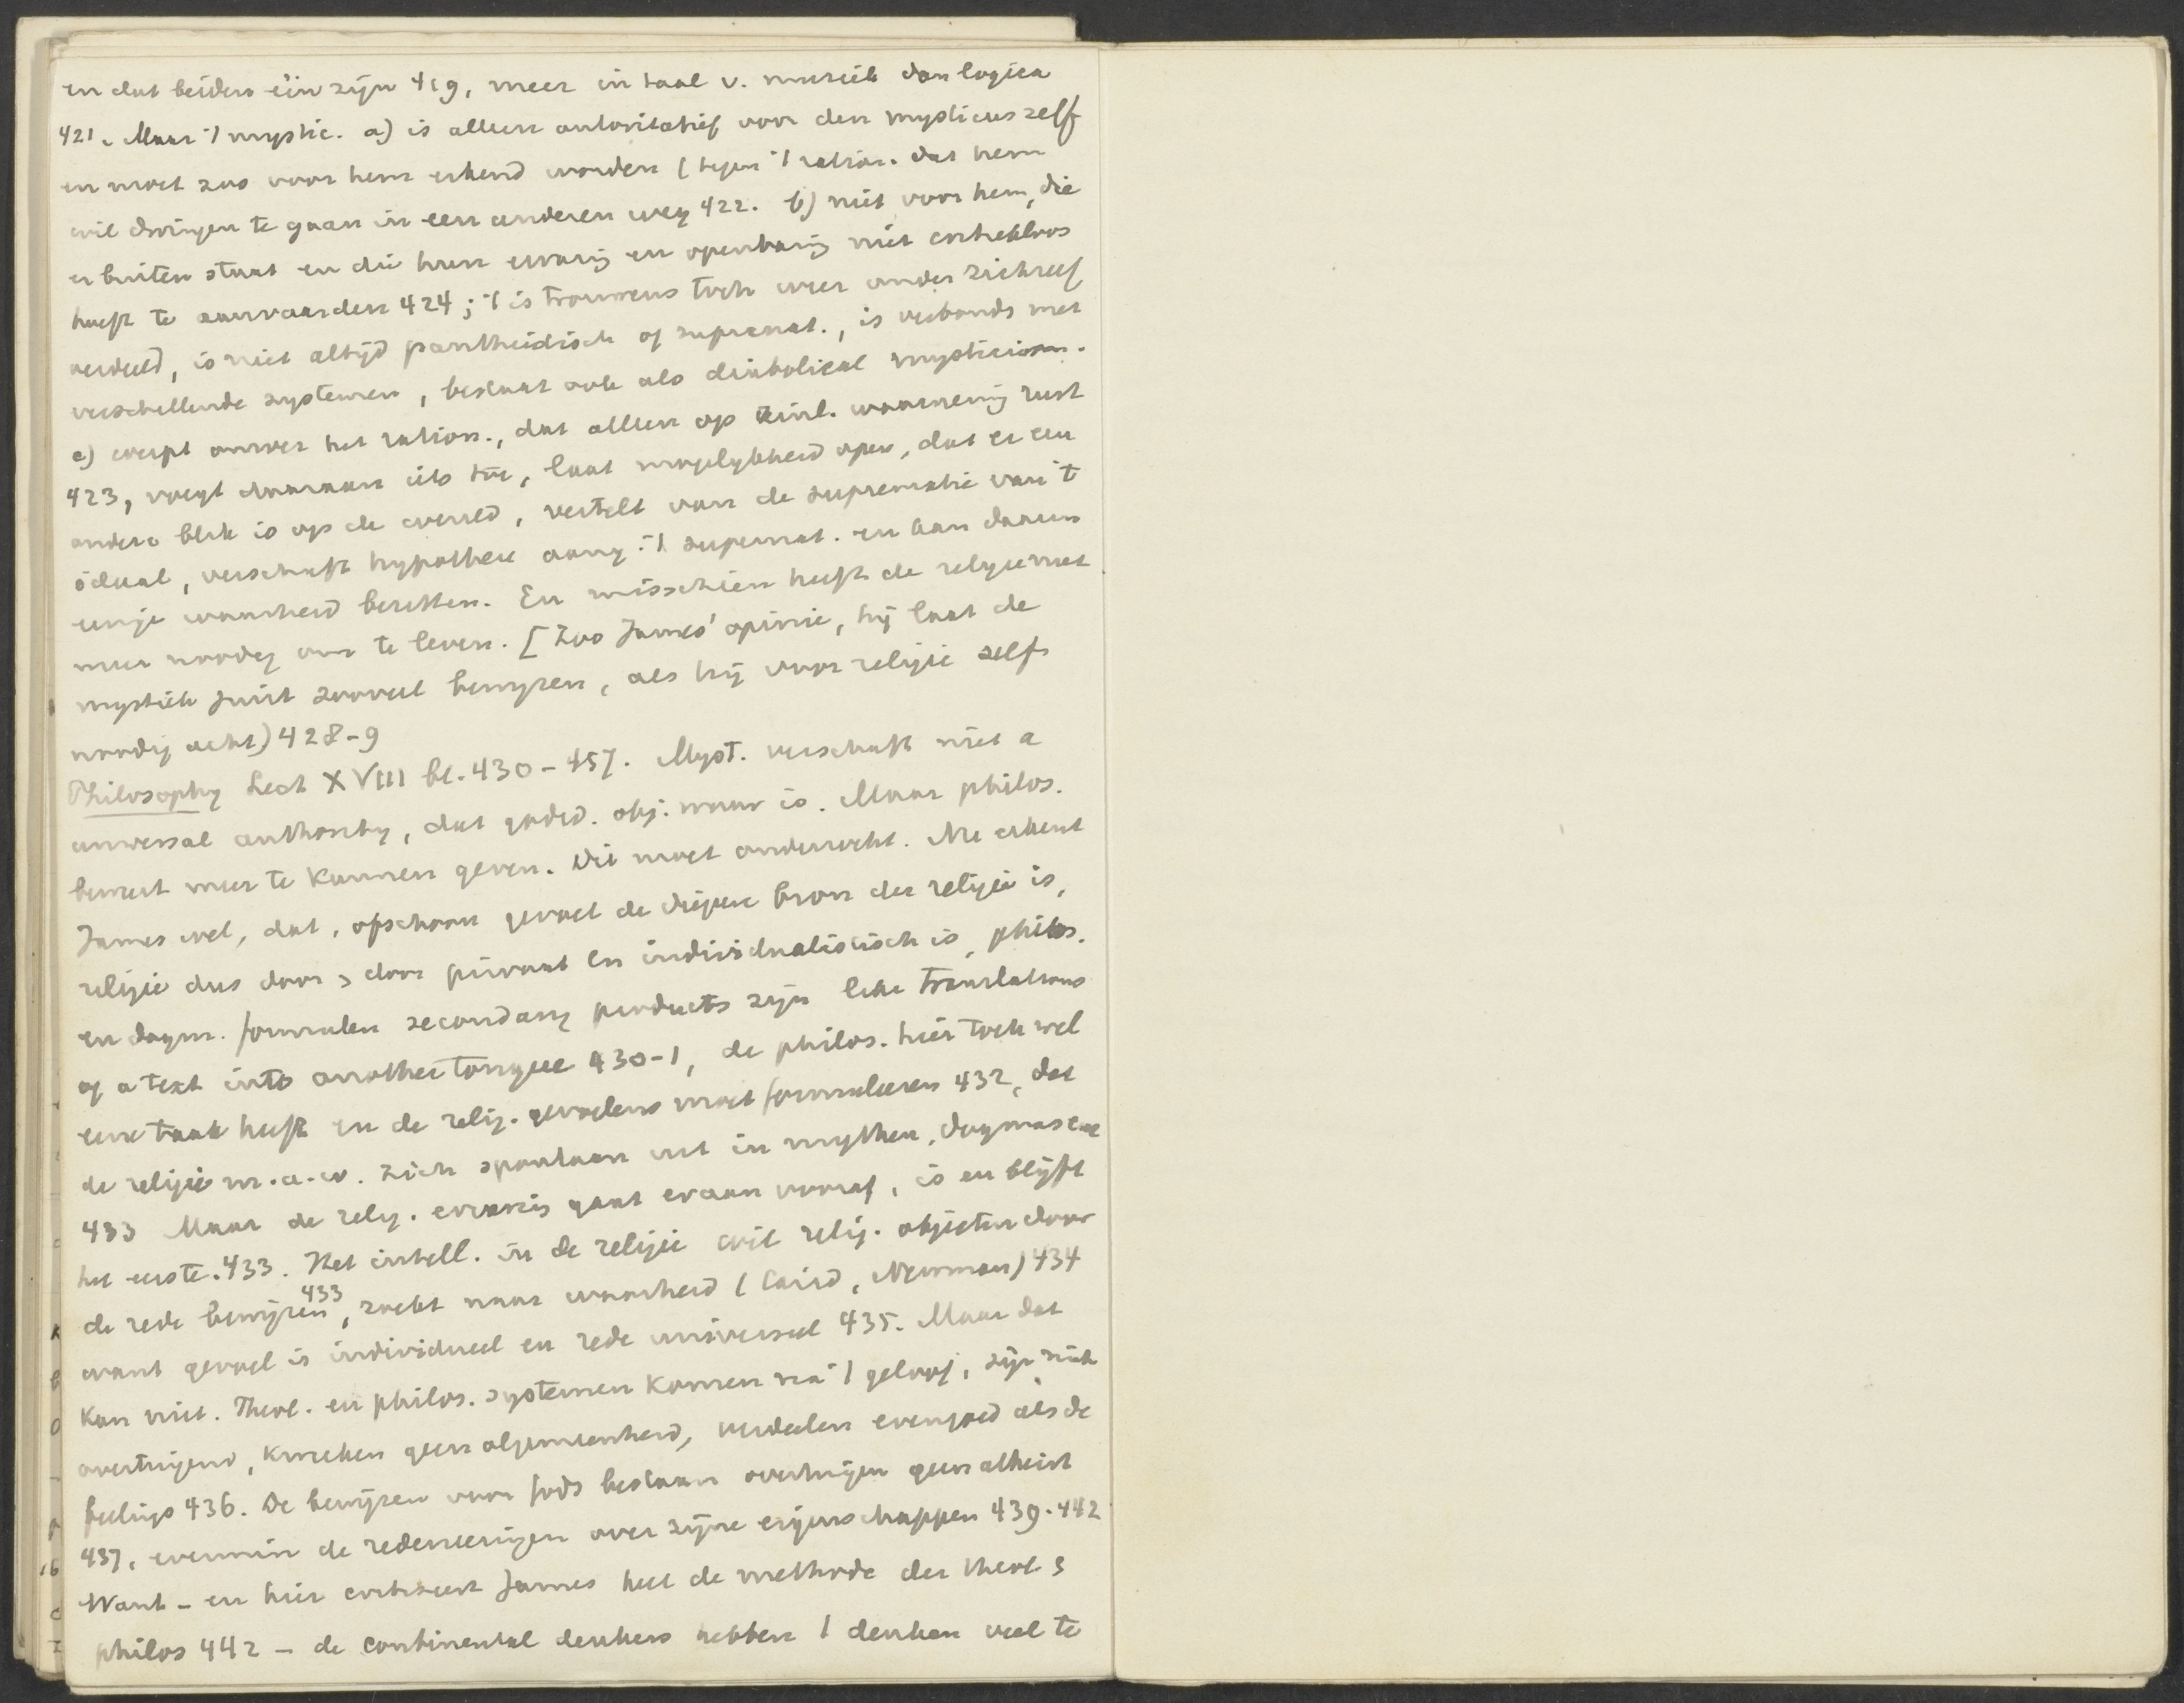 en dat beiden één zijn 419, meer in taal v. muziek dan logica
421. Maar 't mystic. a) is alleen autoritatief voor den mysticus zelf
en moet zoo voor hem erkend worden (tegen 't ration. dat hem
wil dwingen te gaan in een anderen weg 422. b) niet voor hem, die
er buiten staat en die hun ervaring en openbaring niet critiekloos
hoeft te aanvaarden 424; 't is trouwens toch weer onder zichzelf
verdeeld, is niet altijd pantheistisch of supranat., is verbonds met
verschillende systemen, bestaat ook als diabolical mysticism.
c) werpt omver het ration., dat alleen op zinl. waarneming rust
423, voegt daaraan iets toe, laat mogelykheid open, dat er een
andere blik is op de wereld, vertelt van de suprematie van 't
ideaal, verschaft hypothese aang. 't supernat. en kan daarin
eenige waarheid bezitten. En misschien heeft de religie niet
meer noodig om te leven. [Zoo James' opinie, hij laat de
mystiek juist zooveel bewyzen, als hij voor religie zelf
noodig acht) 428-9
Philosophy Lect XVIII bl. 430-457. Myst. verschaft niet a
universal authority, dat godsd. obj. waar is. Maar philos.
beweert meer te kunnen geven. Dit moet onderzocht. Nu erkent
James wel, dat, ofschoon gevoel de diepere bron der religie is,
religie dus door en door privaat en individualistisch is, philos.
en dogm. formulen secondary products zijn like translations
of a text into another tongue 430-1, de philos. hier toch wel
eene taak heeft en de relig. gevoelens moet formuleeren 432, dat
de religie m.a.w. zich spontaan uit in mythen, dogmas enz
433 Maar de relig. ervaring gaat eraan vooraf, is en blijft
het eerste. 433. Het intell. in de religie wil relig. objecten door
de rede bewijzen 433, zoekt naar waarheid (Caird, Newman) 434
want gevoel is individueel en rede universeel 435. Maar dat
kan niet. Theol. en philos. systemen komen na 't geloof, zijn niet
overtuigend, kweeken geen algemeenheid, verdeelen evengoed als de
feelings 436. De bewijzen voor Gods bestaan overtuigen geen atheist
437, evenmin de redeneeringen over zijne eigenschappen 439-442
Want - en hier critiseert James heel de methode der theol &
philos 442 - de continental denkers hebben 't denken veel te